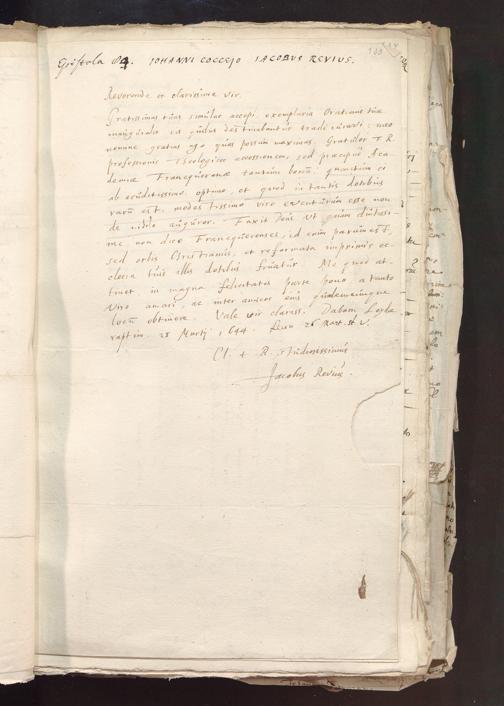 Epistola 84. IOHANNI COCCEJO IACOBUS REVIUS.
Reverende et clarissime vir.
Gratissimas tuas simulac accepi, exemplaria Orationis tuæ
inauguralis ijs quibus destinabantur tradi curavi; meo
nomine gratias ago quas possum maximas. Gratulor T. R.
professionis Theologicæ accessionem, sed præcipue Aca-
demiæ Franequeranæ tantum bonum, quantum ei
ab eruditissimo optimo, et quod in tantis dotibus
rarum est, modestissimo viro eventurum esse non
de nihilo auguror. Faxit Deus ut quam diutissi-
me, non dico Franequerenses, id enim parum est,
sed orbis Christianus, et reformata imprimis ec-
clesia tuis illis dotibus fruatur. Me quod at-
tinet in magna felicitatis parte pono a tanto
viro amari, ac inter amicos eius qualemcunque
locum obtinere. Vale vir clariss. Dabam Leydæ
raptim. 28 Martij 1644. 26 Mart. st. v.
Cl. t. R. studiosissimus
Jacobus Revius.